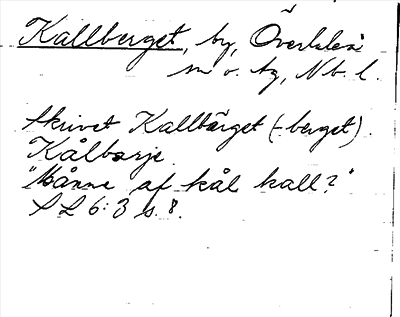 Kallberget, by, Överkalix
m o. by, Nb. l.
Skrivet Kallbärget (-berget).
Kålbarje.
"Månne af kål kall?"
S L 6:3 s. 8.